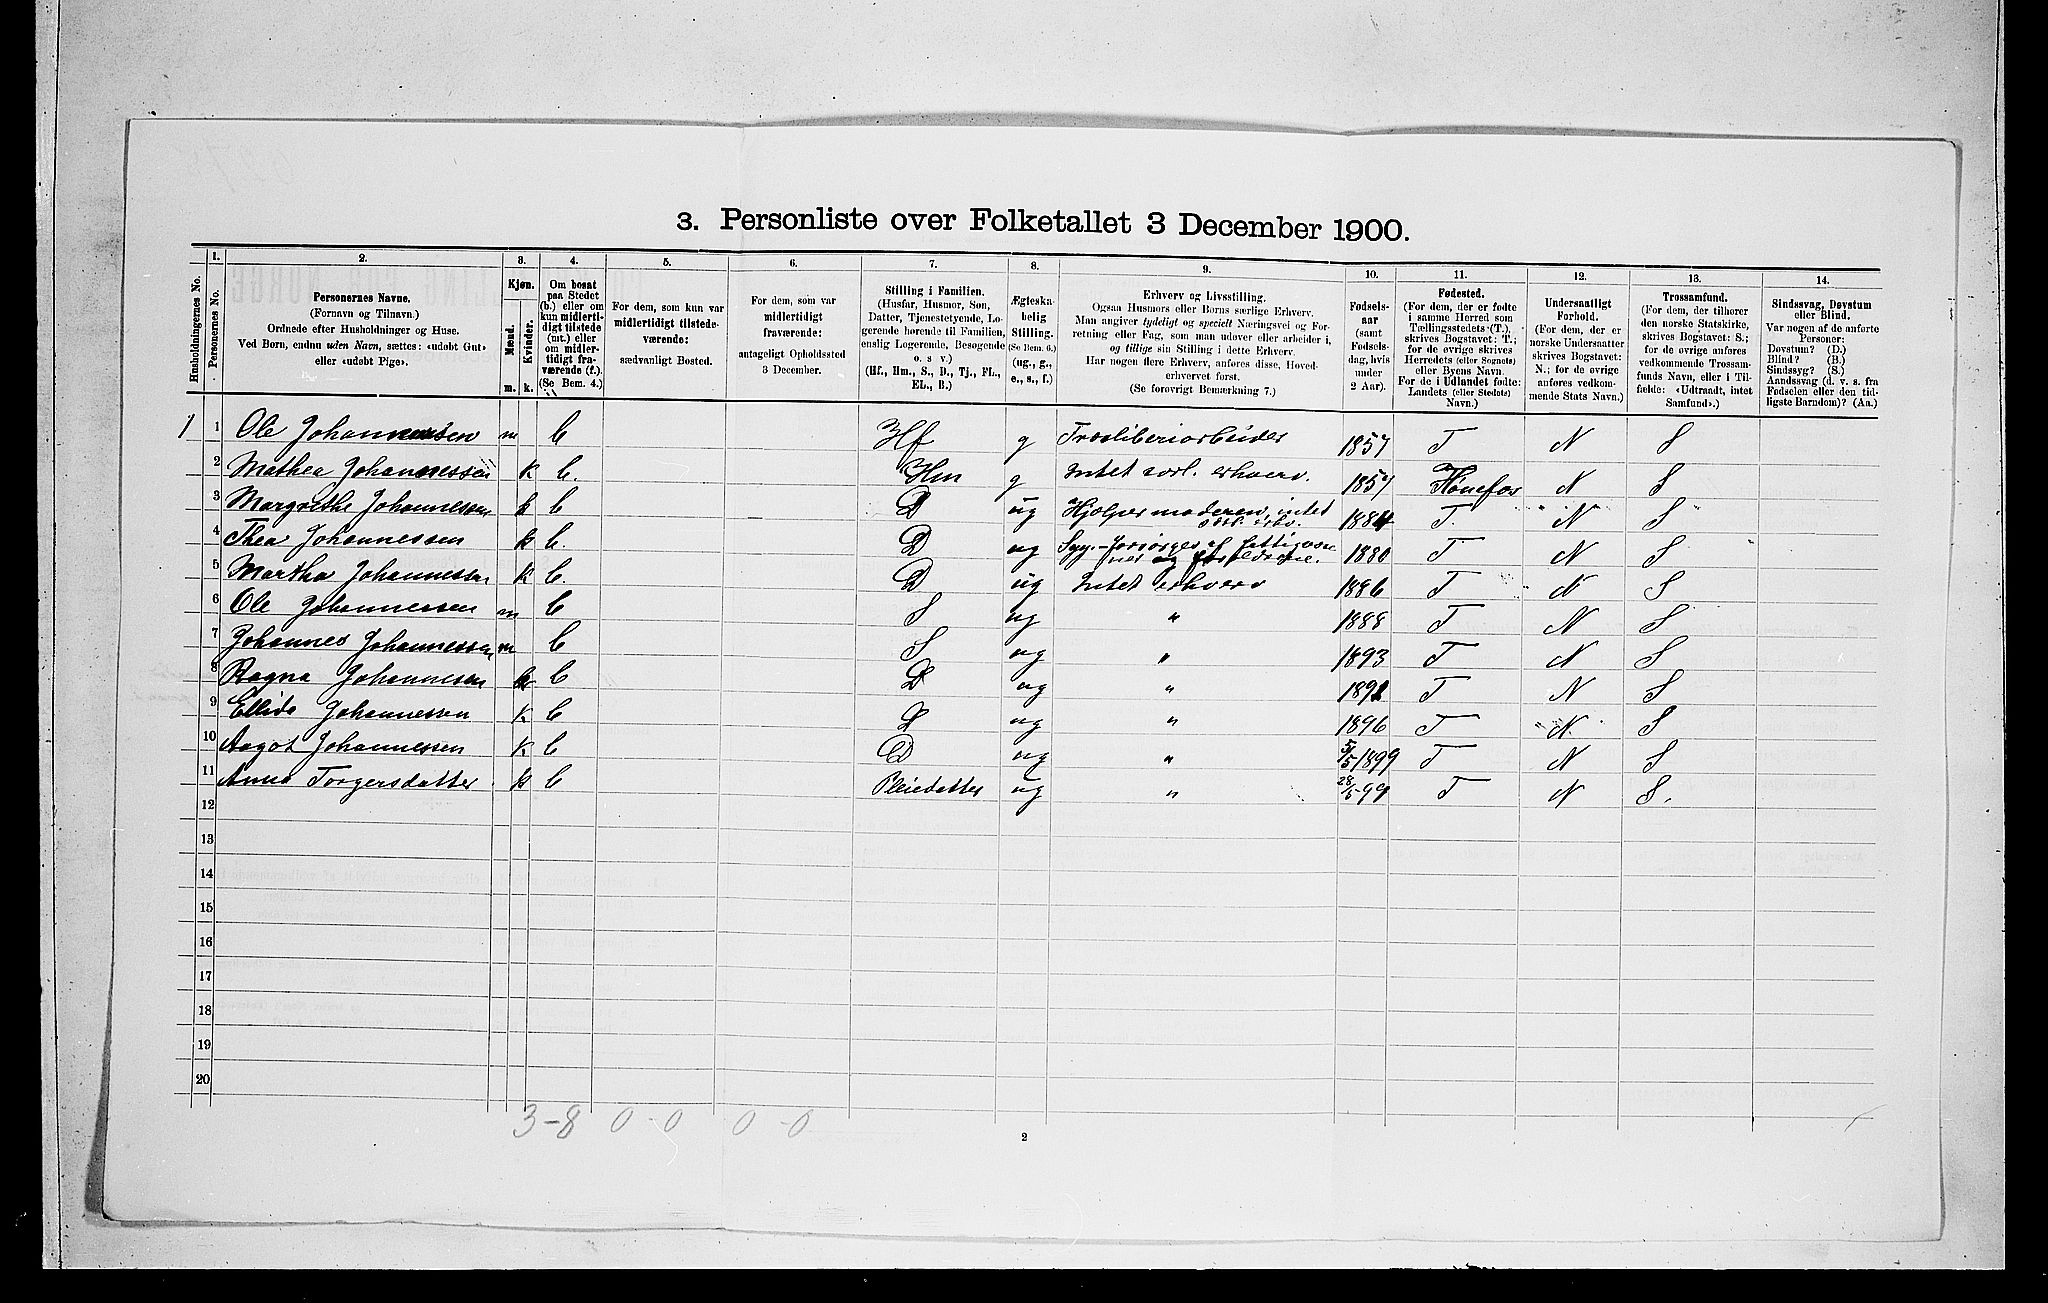 3. Personliste over Folketallet 3 December 1900.
Husholdningernes No.
1.
Personernes No.
2.
Personernes Navne.
(Fornavn og Tilnavn.)
Ordnede efter Husholdninger og Huse.
Ved Børn, endnu uden Navn, sættes: «udøbt Gut»
eller «udøbt Pige».
3.
Kjøn.
Mænd.
Kvinder.
m.
k.
4.
Om bosat
paa Stedet
(b.) eller om
kun midlerti-
digt tilstede
(mt.) eller
om midler-
tidigt fra-
værende (f.).
(Se Bem. 4.)
5.
For dem, som kun var
midlertidigt tilstede-
værende:
sædvanligt Bosted.
6.
For dem, som var
midlertidigt
fraværende:
antageligt Opholdssted
3 December.
7.
Stilling i Familien.
(Husfar, Husmor, Søn,
Datter, Tjenestetyende, Lo-
gerende hørende til Familien,
enslig Logerende, Besøgende
o. s. v.)
(Hf., Hm., S., D., Tj., FL.,
EL., B.)
8.
Ægteska-
belig
Stilling.
(Se Bem. 6.)
(ug., g.,
e., s., f.)
9.
Erhverv og Livsstilling.
Ogsaa Husmors eller Børns særlige Erhverv.
Man angiver tydeligt og specielt Næringsvei og For-
retning eller Fag, som man udøver eller arbeider i,
og tillige sin Stilling i dette Erhverv.
Har nogen flere Erhverv, anføres disse, Hoved-
erhvervet først.
(Se forøvrigt Bemærkning 7.)
10.
Fødsels-
aar
(samt
Fødsels-
dag, hvis
under
2 Aar).
11.
Fødested.
(For dem, der er fødte
i samme Herred som
Tællingsstedets (T.),
skrives Bogstavet: T.;
for de øvrige skrives
Herredets (eller Sognets)
eller Byens Navn.
For de i Udlandet fødte:
Landets (eller Stedets)
Navn.)
12.
Undersaatligt
Forhold.
(For dem, der er
norske Undersaatter
skrives Bogstavet:
N.; for de øvrige
anføres vedkom-
mende Stats Navn.)
13.
Trossamfund.
(For dem, der tilhører
den norske Statskirke,
skrives Bogstavet: S.;
for de øvrige anføres
vedkommende Trossam-
funds Navn, eller i Til-
fælde: «Udtraadt, intet
Samfund».)
14.
Sindssvag, Døvstum
eller Blind.
Var nogen af de anførte
Personer:
Døvstum? (D.)
Blind? (B.)
Sindssyg? (S.)
Aandssvag (d. v. s. fra
Fødselen eller den tid-
ligste Barndom)? (Aa.)
1 1 Ole Johannessen m b Hf g Træsliberiarbeider 1857 T N S
2 Mathea Johannessen k b. Hm g Intet særl. erhverv. 1857 Hønefos N S
3 Margrethe Johannessen k b D ug Hjælper moderen, intet særl. erhv. 1884 T. N S
4 Thea Johannessen k b. D ug Syg.-forsørges af fattigvæsnet og forældrene. 1880 T N S
5 Martha Johannessen k b. D ug Intet erhverv 1886 T N S
6 Ole Johannessen m b S ug " 1888 T N S
7 Johannes Johannessen m b S ug " 1893 T N S
8 Ragna Johannesen k b D ug " 1892 T N S
9 Ellida Johannessen k b D ug " 1896 T N. S
10 Aagot Johannessen k b D ug " 5/5 1899 T N S
11 Anna Torgersdatter k b Pleiedatter ug " 28/5 99 T N S.
12
13
14
15
16
17
18
19
20
3-8 0-0 0-0
2